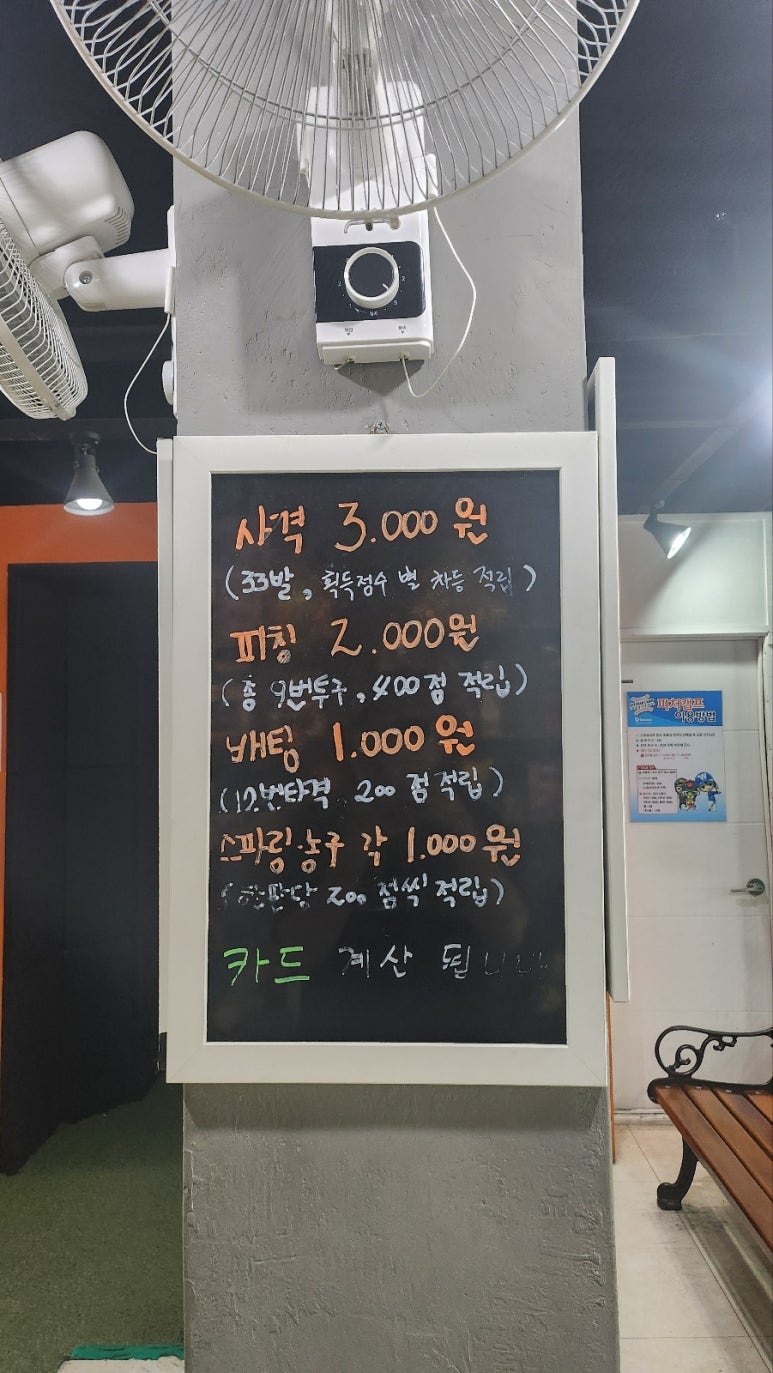 사격 3.000원
(33발, 획득점수 별 차등 적립)
피칭 2.000원
(총 9번투구, 400점 적립)
배팅 1.000원
(12번타격, 200점 적립)
스파링·농구 각 1.000원
(한판당 200점씩 적립)
카드 계산 됩니다
피처캠프
이용방법